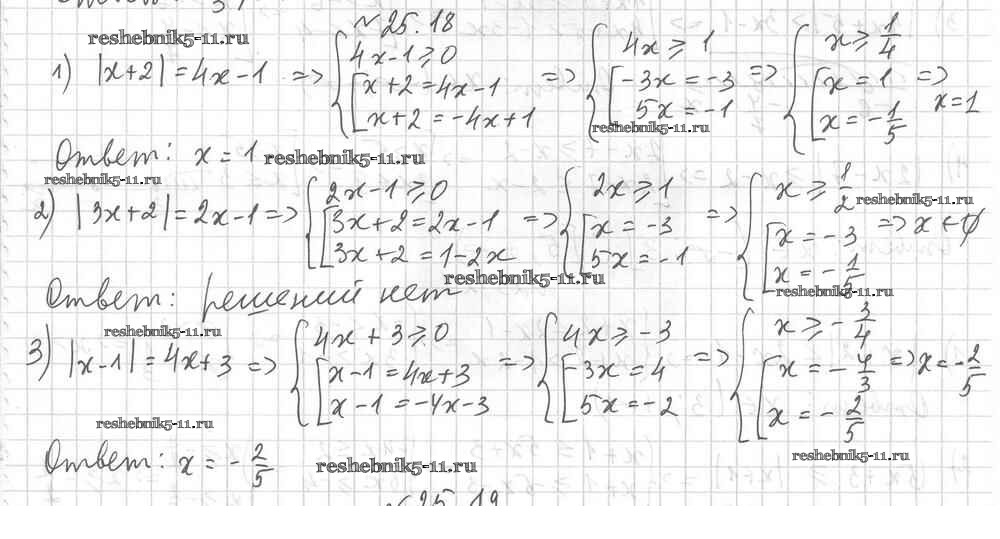 №25.18
reshebnik5-11.ru
1) |x+2| = 4x-1 => { 4x-1⩾0 [ x+2=4x-1 x+2=-4x+1 => { 4x⩾1 [ -3x=-3 5x=-1 => { x⩾1/4 [ x=1 x=-1/5 => x=1
reshebnik5-11.ru
Ответ: x=1 reshebnik5-11.ru
reshebnik5-11.ru
2) |3x+2|=2x-1 => { 2x-1⩾0 [ 3x+2=2x-1 3x+2=1-2x => { 2x⩾1 [ x=-3 5x=-1 => { x⩾1/2 [ x=-3 x=-1/5 =>
reshebnik5-11.ru
reshebnik5-11.ru
reshebnik5-11.ru
Ответ: решений нет
reshebnik5-11.ru
3) |x-1|=4x+3 => { 4x+3⩾0 [ x-1=4x+3 x-1=-4x-3 => { 4x⩾-3 [ -3x=4 5x=-2 => { x⩾-3/4 [ x=-4/3 x=-2/5 => x=-2/5
reshebnik5-11.ru
reshebnik5-11.ru
Ответ: x=-2/5 reshebnik5-11.ru
№25.19